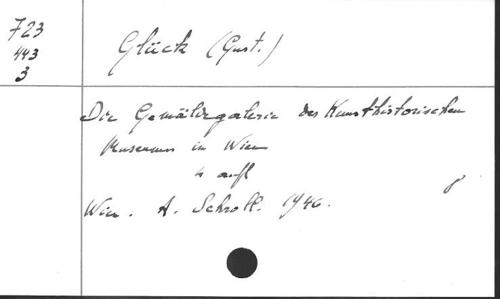 723
443
3
Glück (Gust.)
Die Gemäldegalerie des Kunsthistorischen
Museums in Wien
4 aufl
Wien. A. Schroll. 1940.
8